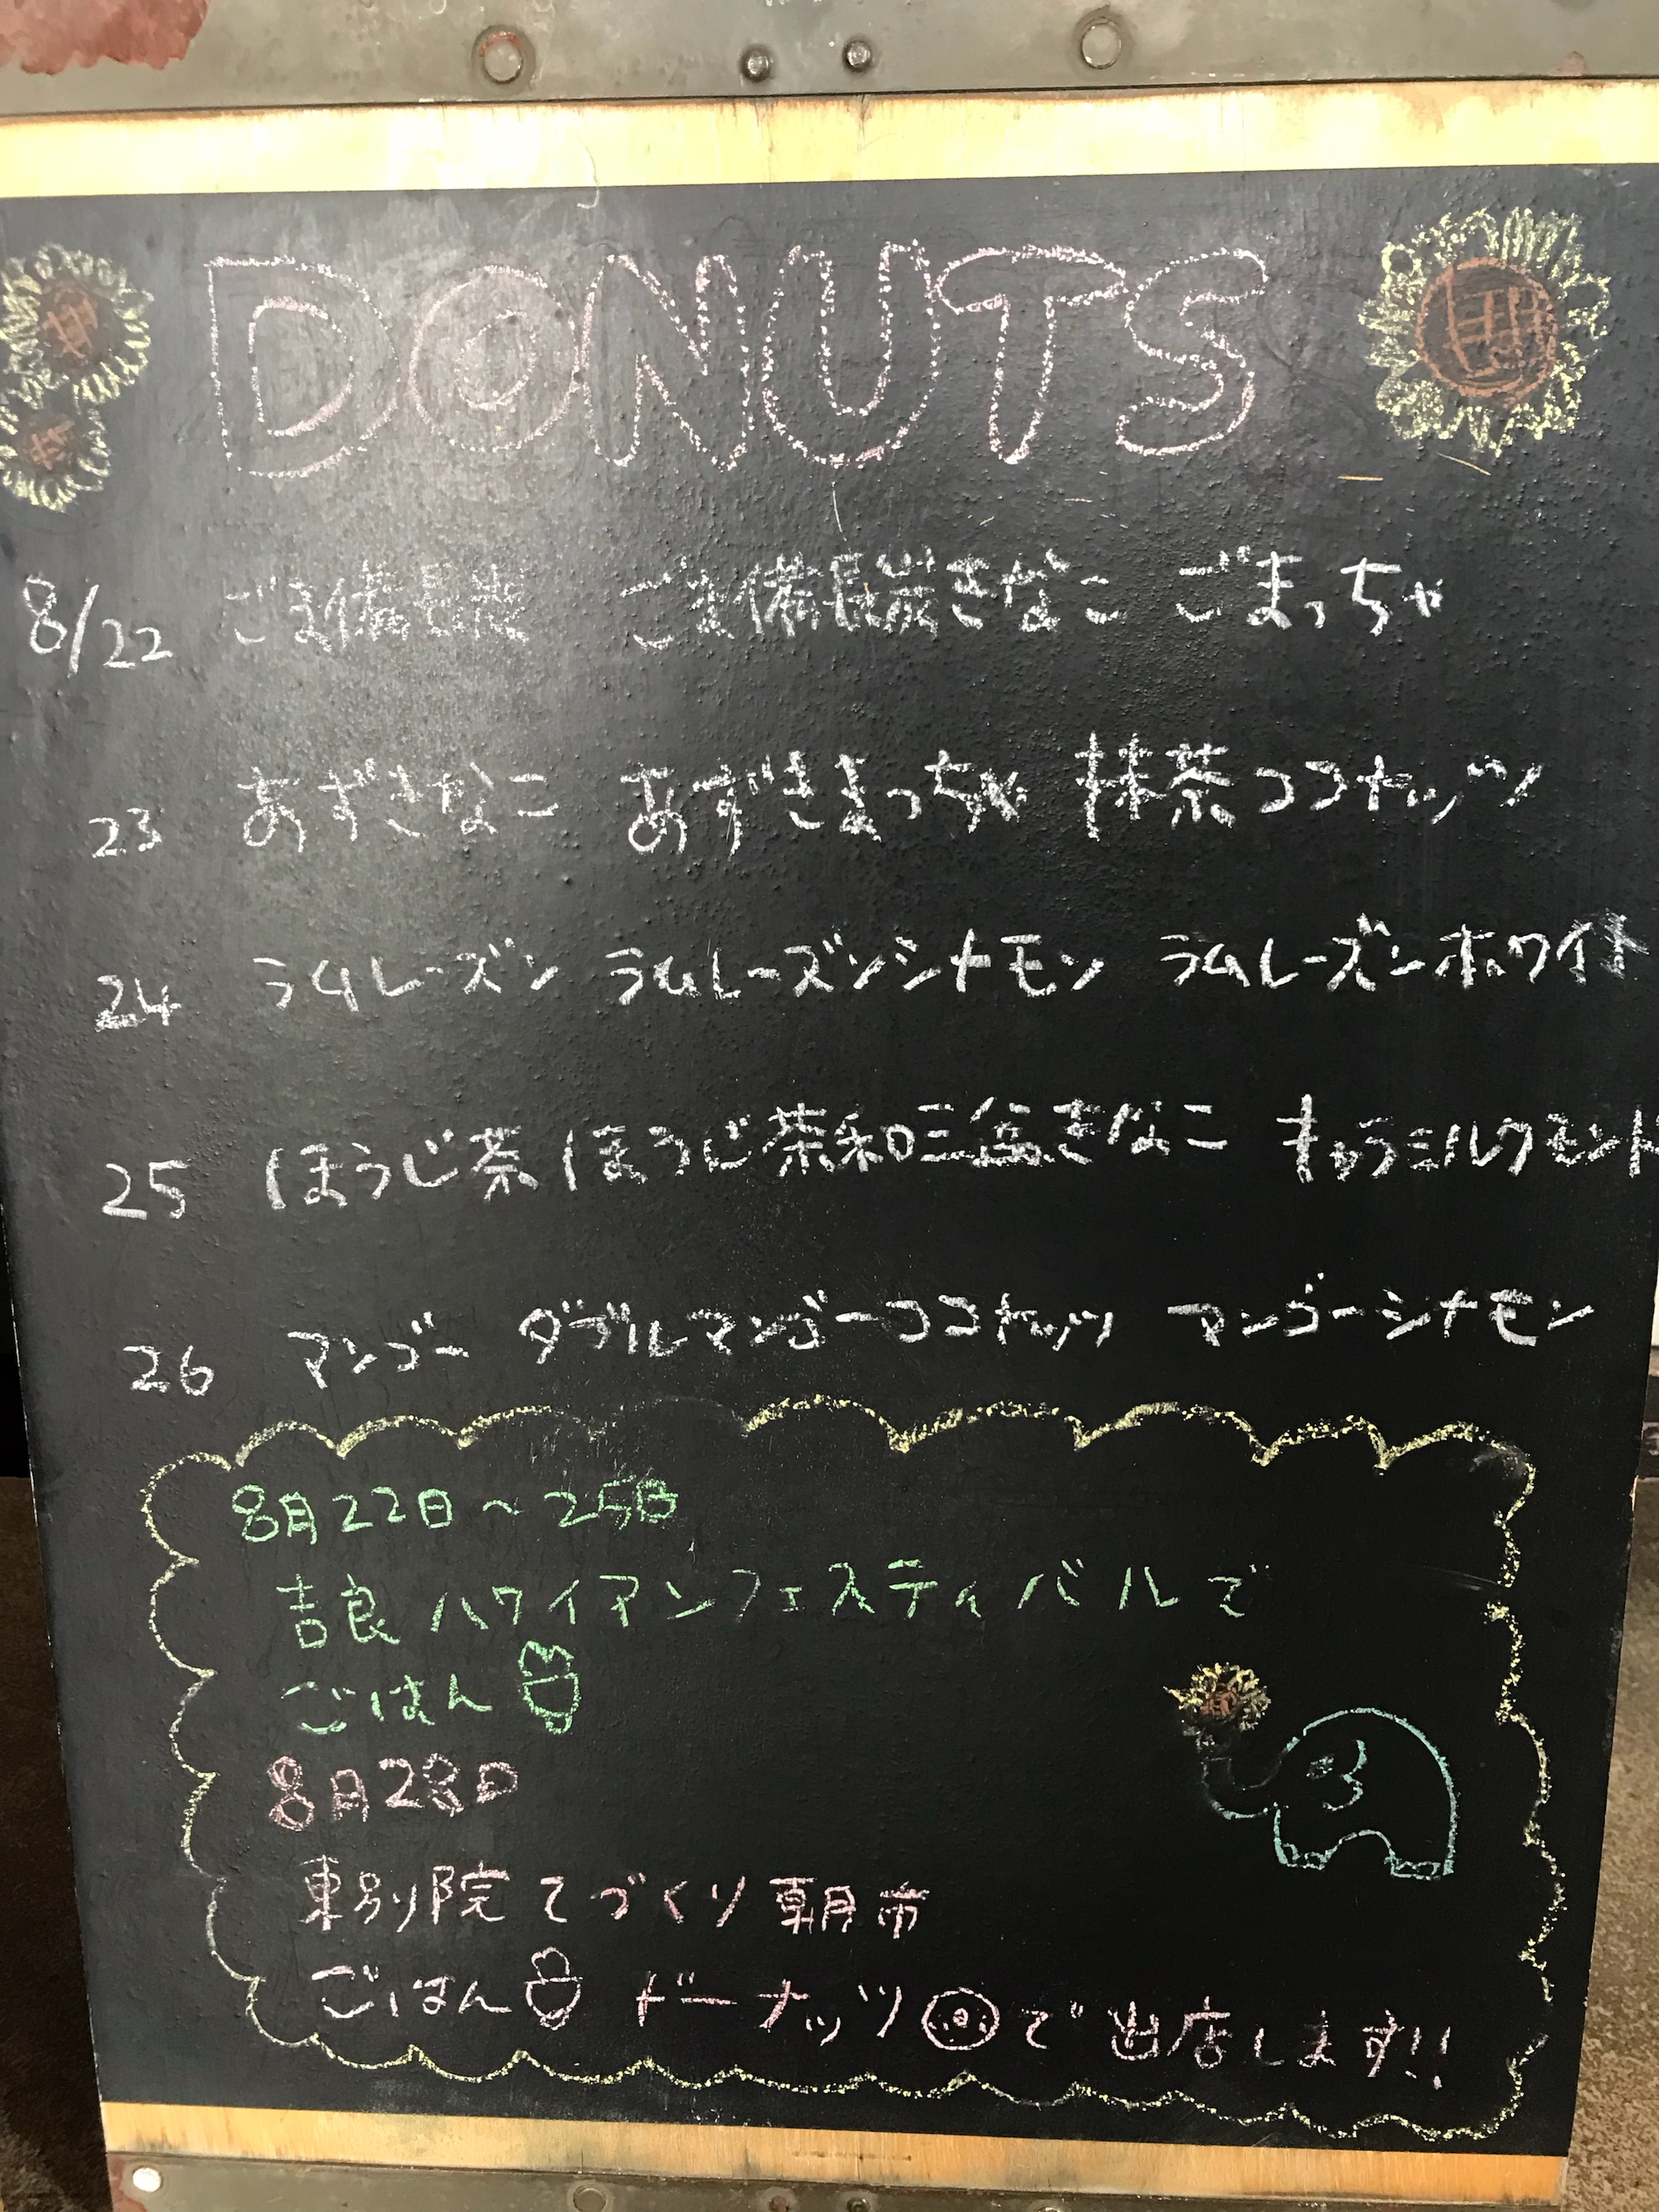 DONUTS
8/22 ごま備長炭 ごま備長炭きなこ ごまっちゃ
23 あずきなこ あずきまっちゃ 抹茶ココナッツ
24 ラムレーズン ラムレーズンシナモン ラムレーズンホワイト
25 ほうじ茶 ほうじ茶和三盆きなこ キャラミルクモンド
26 マンゴー ダブルマンゴーココナッツ マンゴーシナモン
8月22日〜25日
吉良ハワイアンフェスティバルで
ごはん
8月28日
東別院てづくり朝市
ごはん ドーナッツ で出店します!!